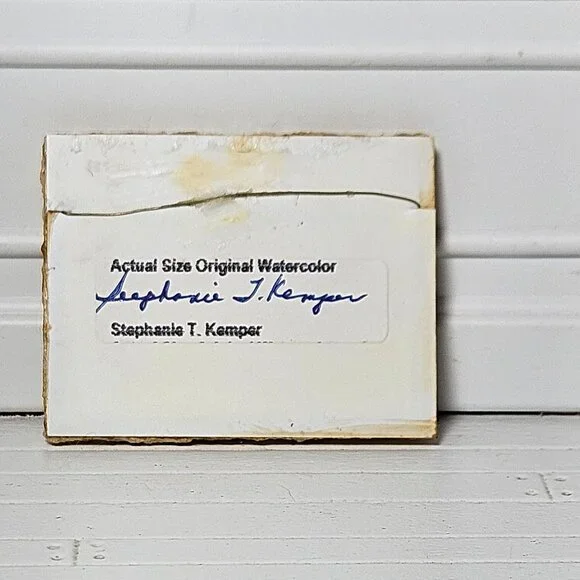 Actual Size Original Watercolor
Stephanie T. Kemper
Stephanie T. Kemper